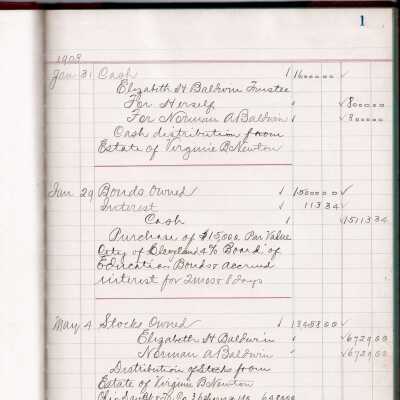 1
1908
Jan 31 Cash 1 16000.00 ✓
Elizabeth H Baldwin Trustee
For Herself " ✓8000.00
For Norman A Baldwin 1 ✓8000.00
Cash distribution from
Estate of Virginie B Newton
Jan 29 Bonds Owned 1 15000.00 ✓
Interest 1 113 34 ✓
Cash 1 ✓15113 34
Purchase of $15,000 Par Value
City of Cleveland 4% Board of
Education Bonds & accrued
interest for 2 mos 8 days
May 4 Stocks Owned 1 13458.00 ✓
Elizabeth H Baldwin " ✓6729.00
Norman A Baldwin " ✓6729.00
Distribution of Stocks from
Estate of Virginie B Newton